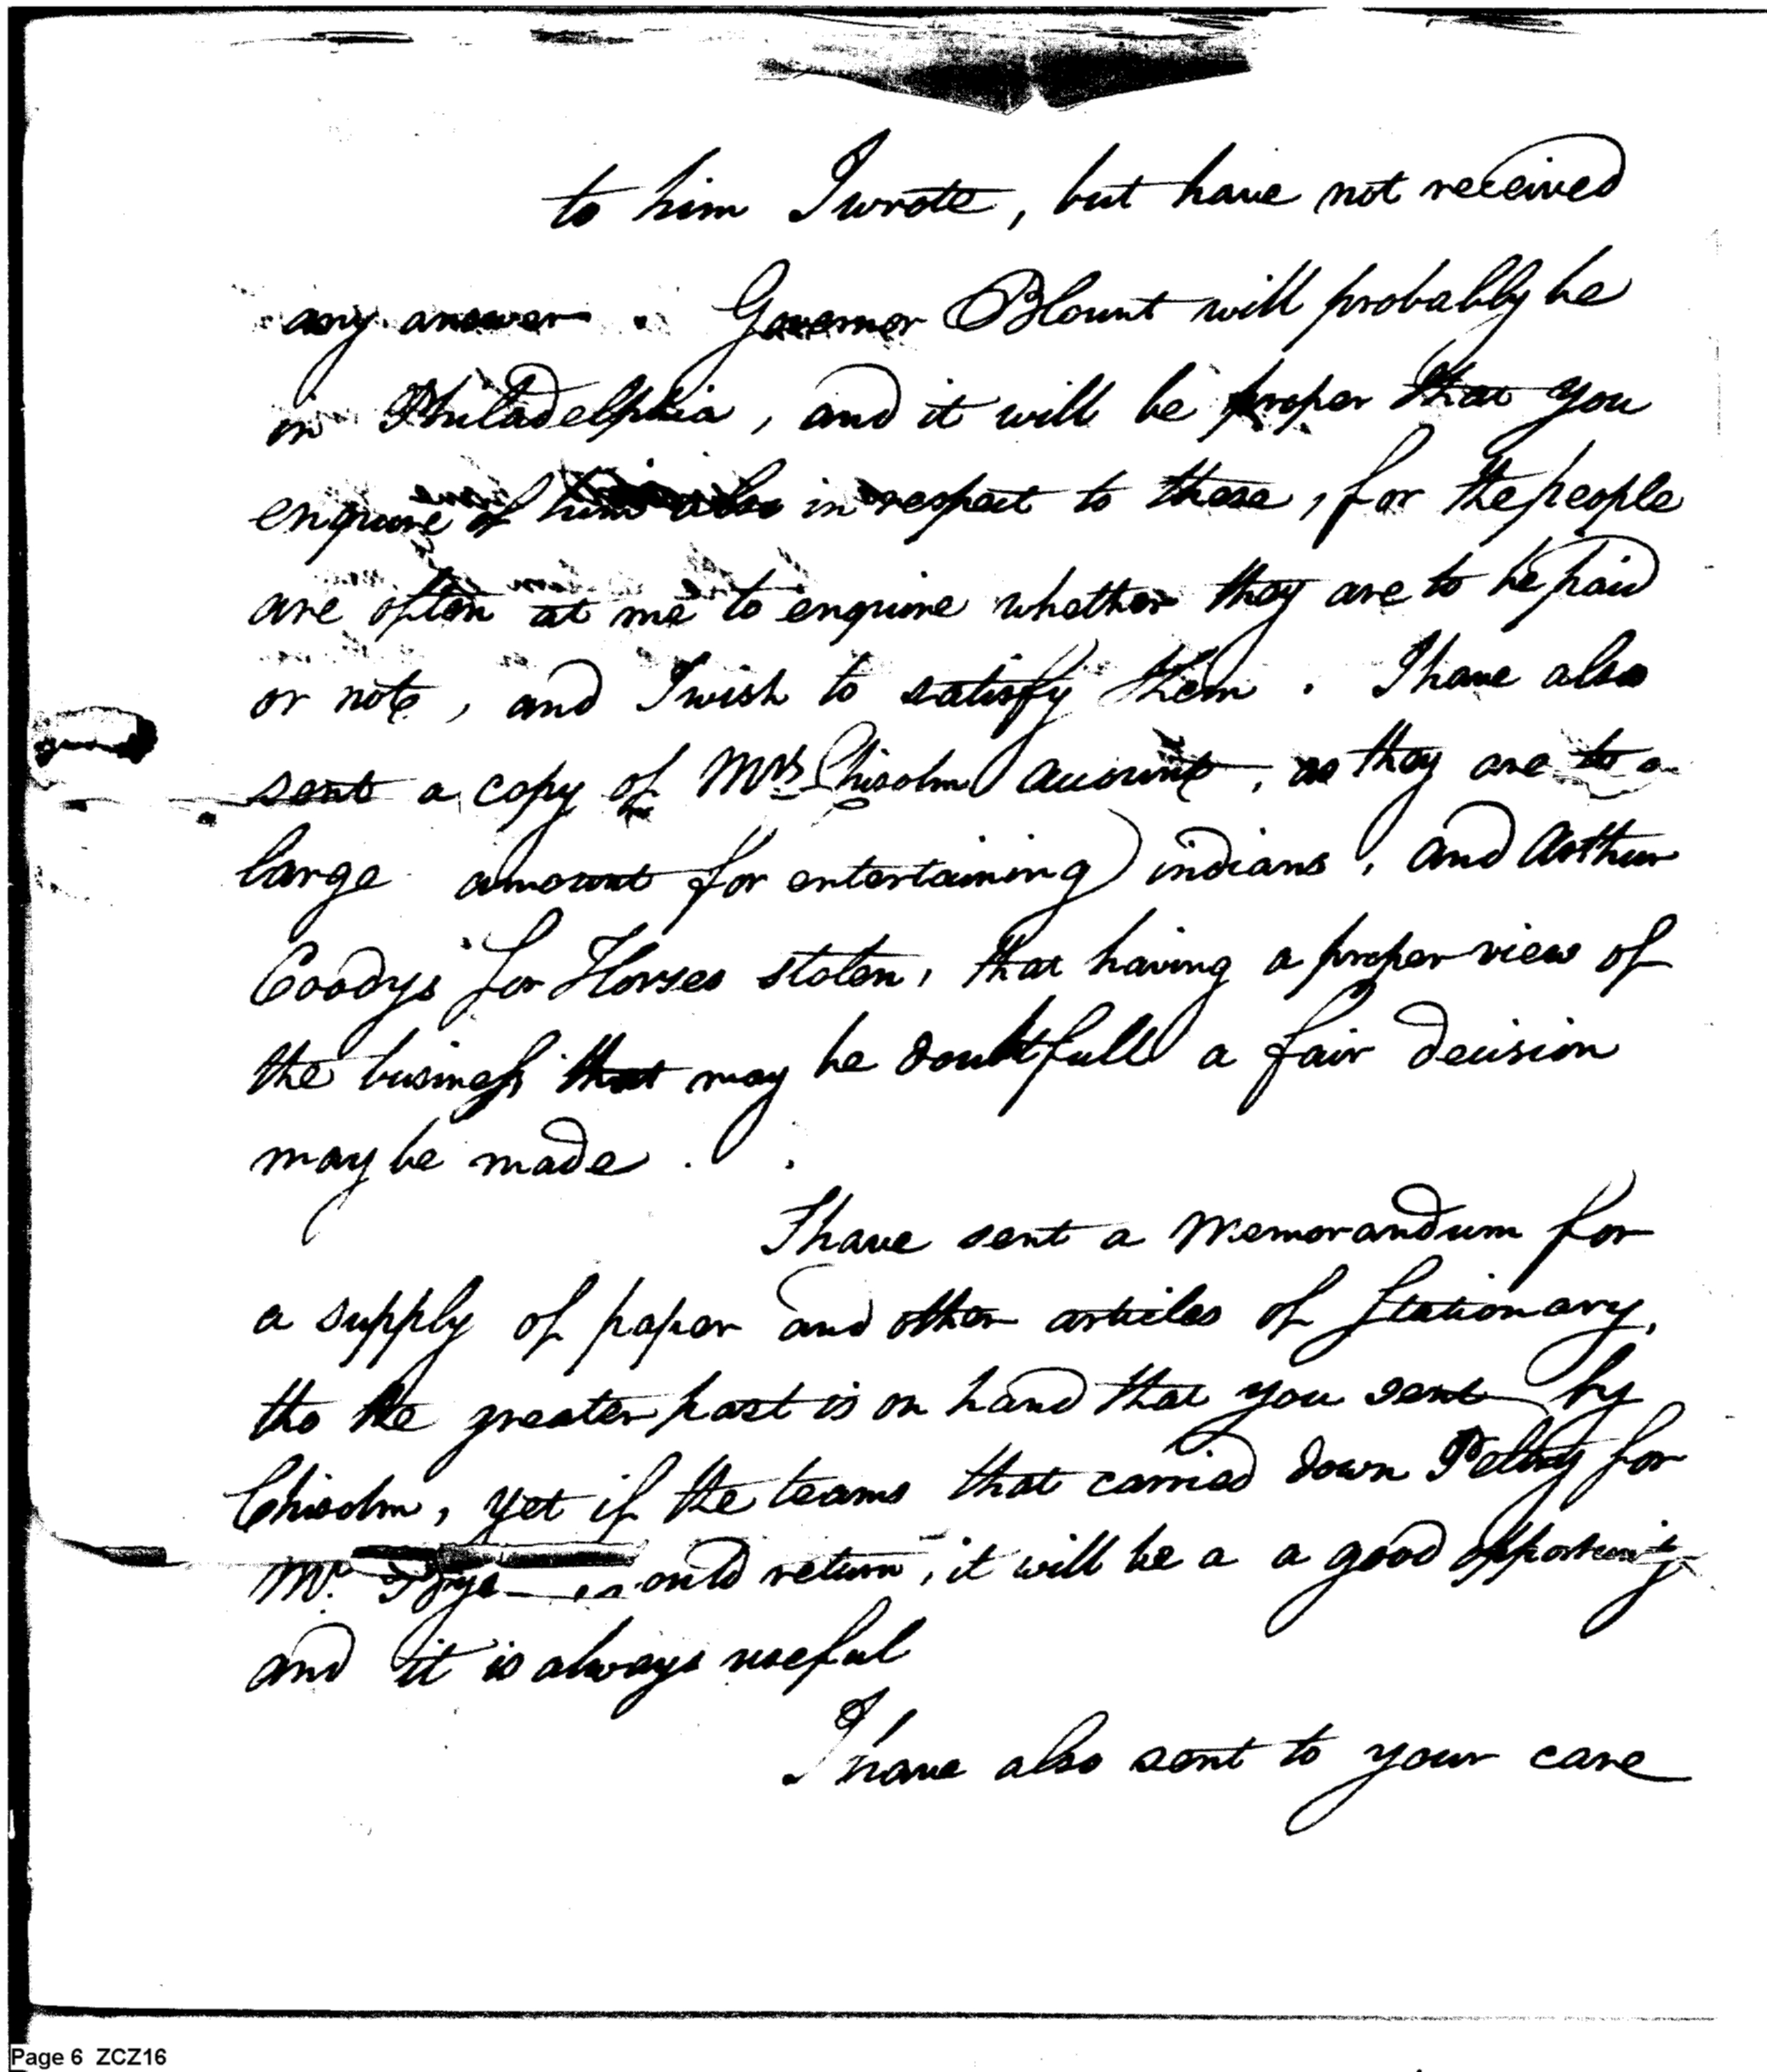 to him I wrote, but have not received
any answer. Governor Blount will probably be
in Philadelphia, and it will be proper that you
enquire of him also in respect to these, for the people
are often at me to enquire whether they are to be paid
or not, and I wish to satisfy them. I have also
sent a copy of Mrs Chisolm accounts, as they are to a
large amount for entertaining indians, and Arthur
Coodys for Horses stolen, that having a proper view of
the business that may be doubtfull a fair decision
may be made.
I have sent a memorandum for
a supply of paper and other articles of stationary,
tho the greater part is on hand that you sent by
Chisolm, yet if the teams that carried down Peltry for
Mr. should return, it will be a a good opportunity
and it is always useful
I have also sent to your care
Page 6 ZCZ16